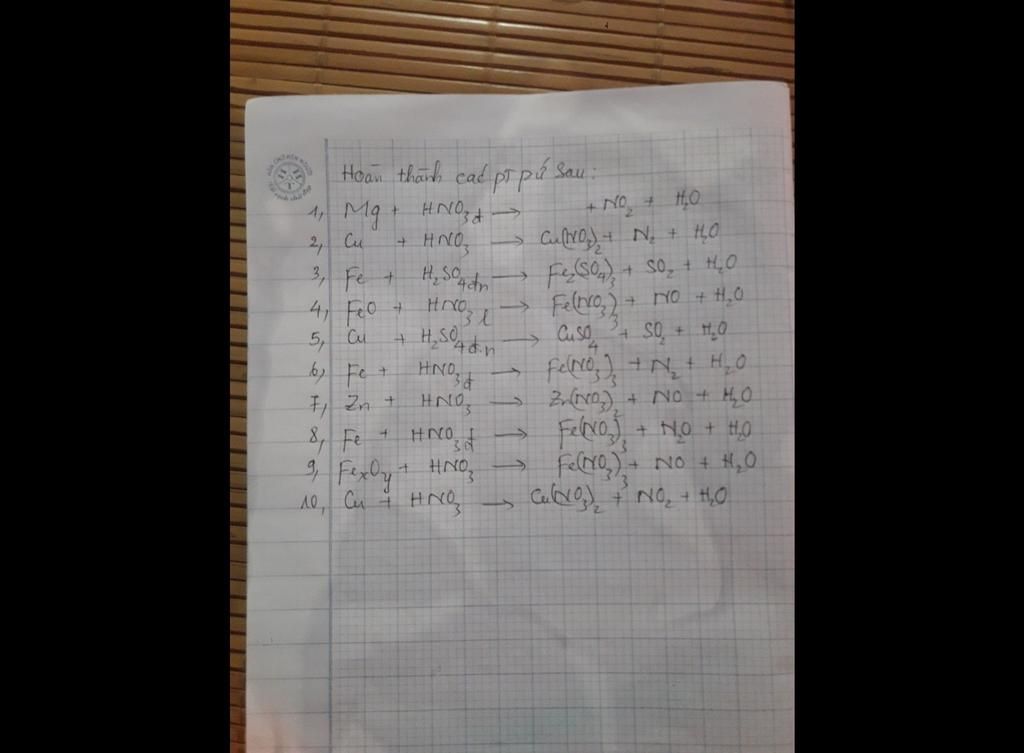 Hoàn thành các pt pứ sau:
1, Mg + HNO₃đ → + NO₂ + H₂O
2, Cu + HNO₃ → Cu(NO₃)₂ + N₂ + H₂O
3, Fe + H₂SO₄đn → Fe₂(SO₄)₃ + SO₂ + H₂O
4, FeO + HNO₃ l → Fe(NO₃)₃ + NO + H₂O
5, Cu + H₂SO₄đ.n → CuSO₄ + SO₂ + H₂O
6, Fe + HNO₃đ → Fe(NO₃)₃ + N₂ + H₂O
7, Zn + HNO₃ → Zn(NO₃)₂ + NO + H₂O
8, Fe + HNO₃đ → Fe(NO₃)₃ + N₂O + H₂O
9, FexOy + HNO₃ → Fe(NO₃)₃ + NO + H₂O
10, Cu + HNO₃ → Cu(NO₃)₂ + NO₂ + H₂O